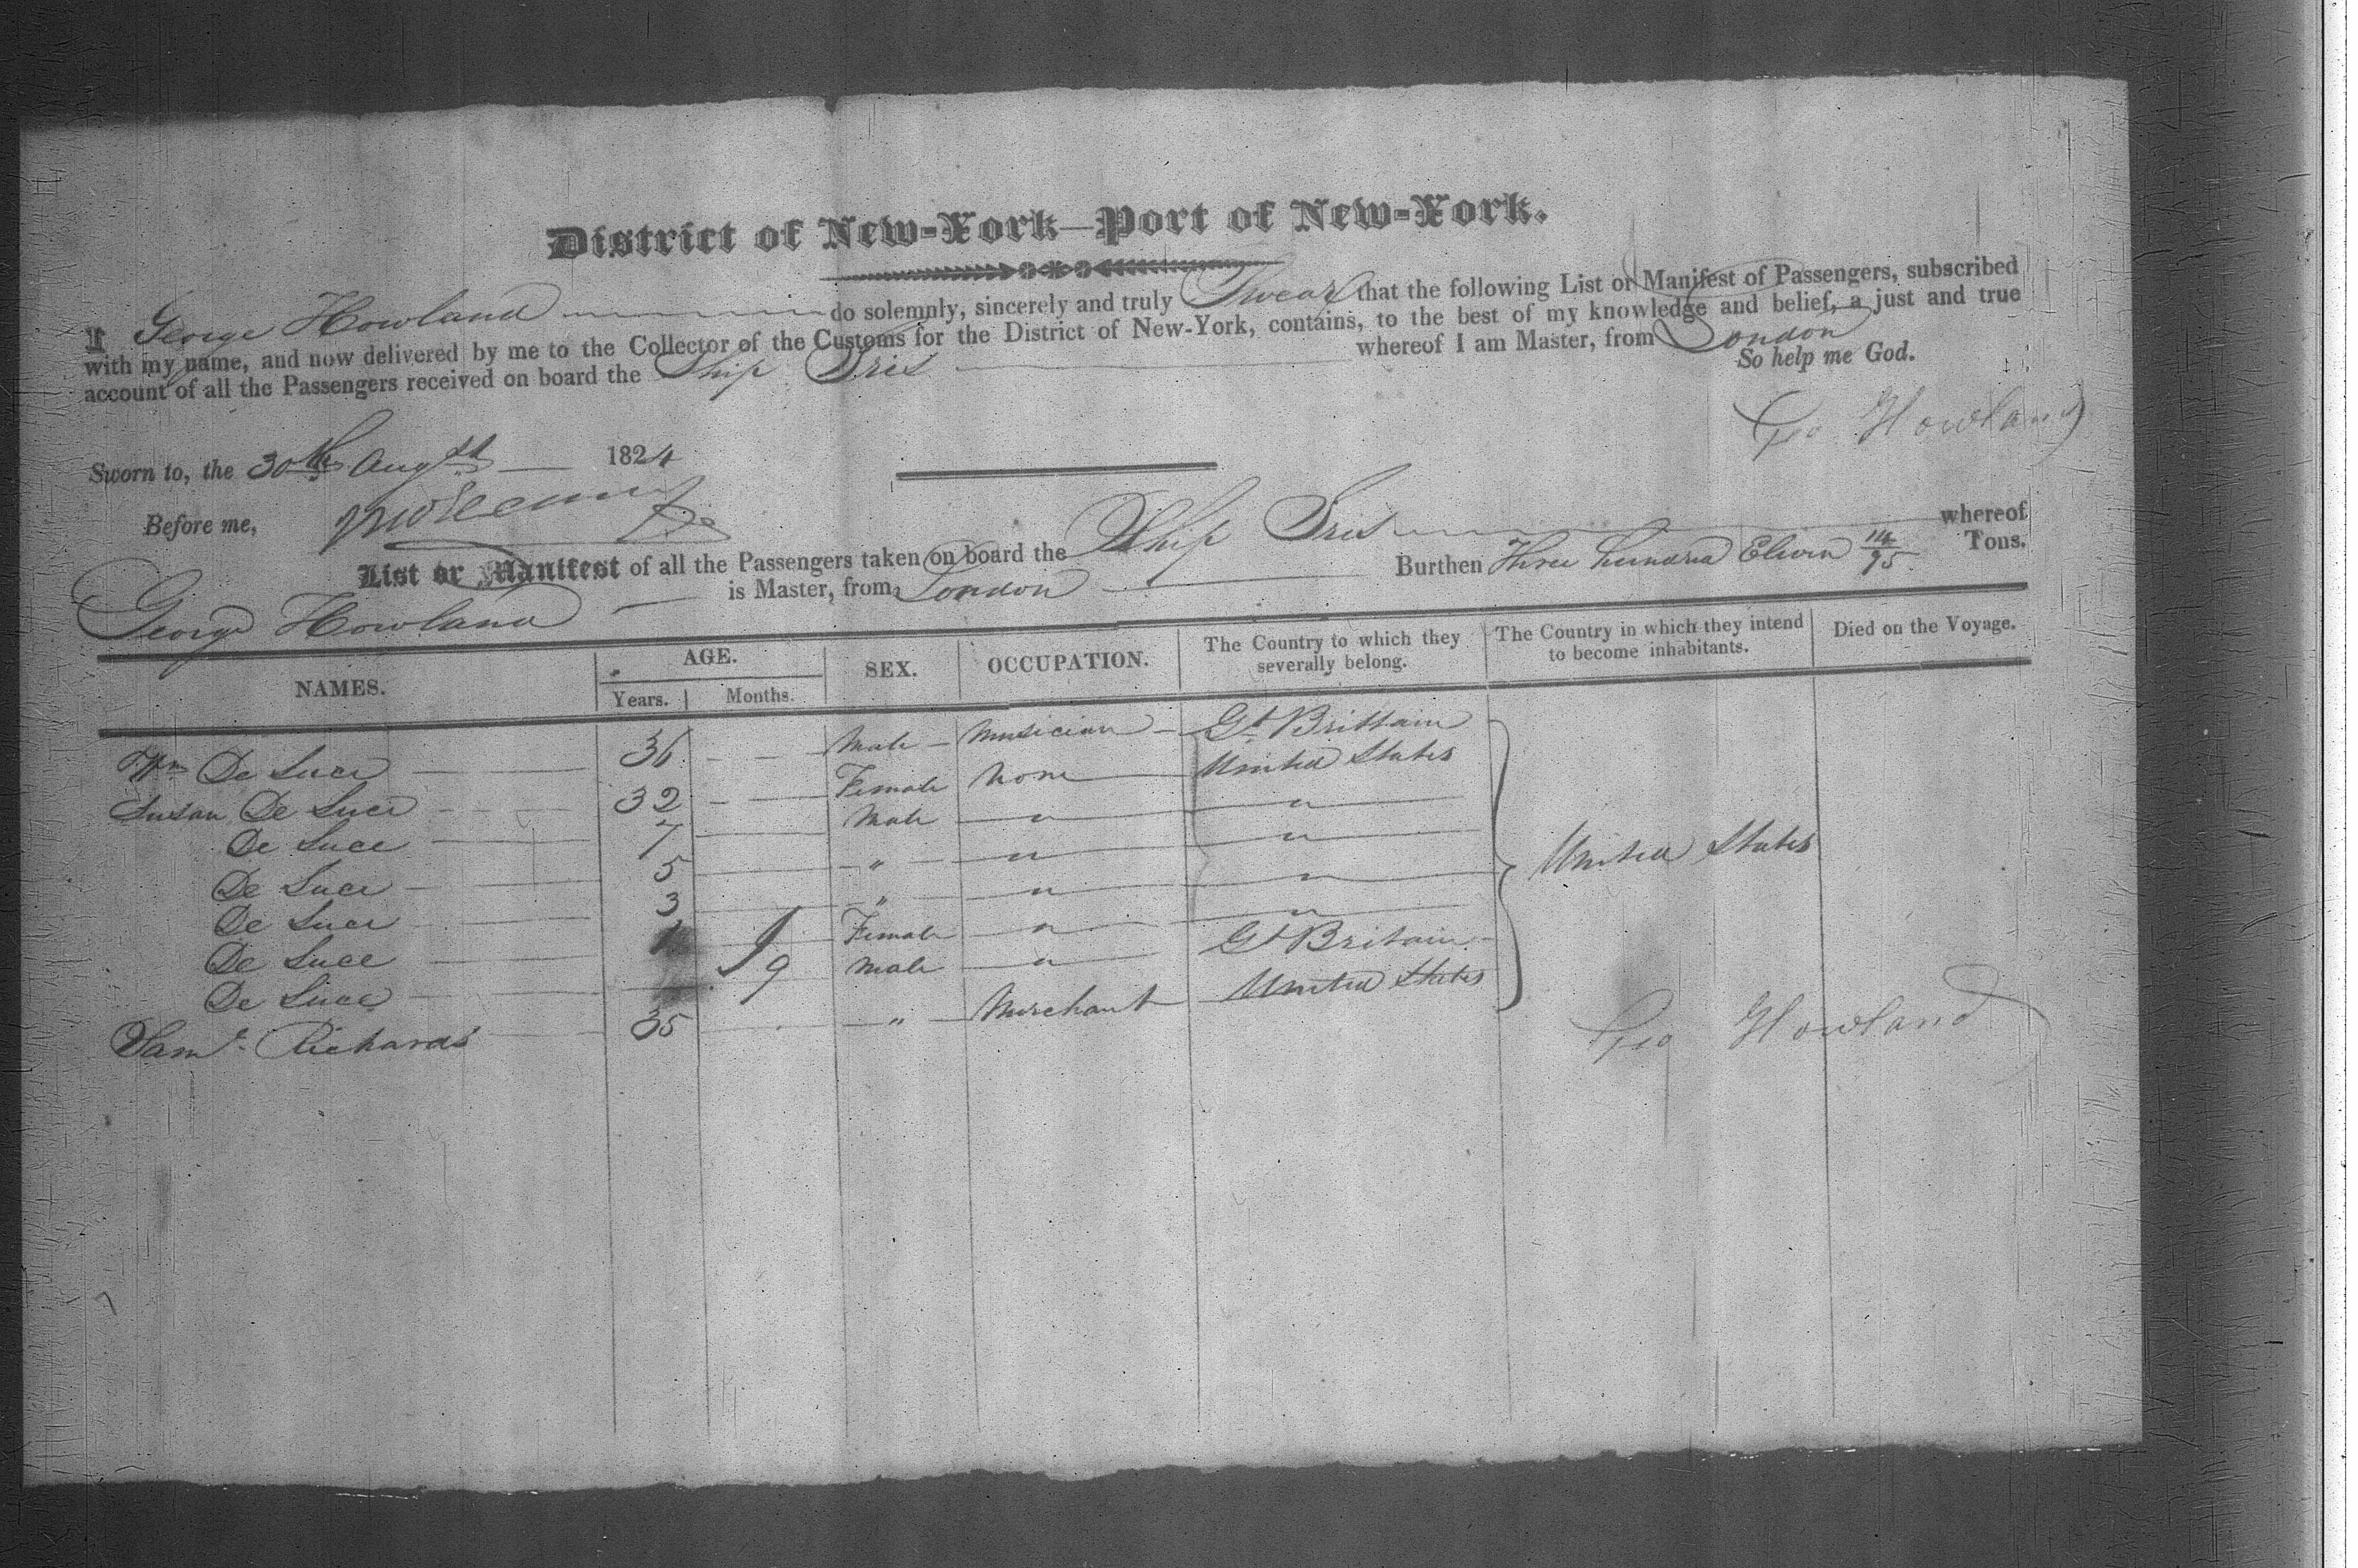 District of New-York—Port of New-York.
I George Howland do solemnly, sincerely and truly Swear that the following List or Manifest of Passengers, subscribed
with my name, and now delivered by me to the Collector of the Customs for the District of New-York, contains, to the best of my knowledge and belief, a just and true
account of all the Passengers received on board the Ship Iris whereof I am Master, from London
So help me God.
Geo Howland
Sworn to, the 30th Augst 1824
Before me,
List or Manifest of all the Passengers taken on board the Ship Iris whereof
George Howland is Master, from London Burthen Three hundred Eleven 14/95 Tons.
NAMES. AGE. SEX. OCCUPATION. The Country to which they severally belong. The Country in which they intend to become inhabitants. Died on the Voyage.
Years. Months.
Wm De Luce 36 Male Musician Gt Brittain
Susan De Luce 32 Female None United States
De Luce 7 Male " "
De Luce 5 " " "
De Luce 3 " " "
De Luce Female " "
De Luce 9 Male " Gt Britain
Saml Richards 35 " Merchant United States
United States
Geo Howland